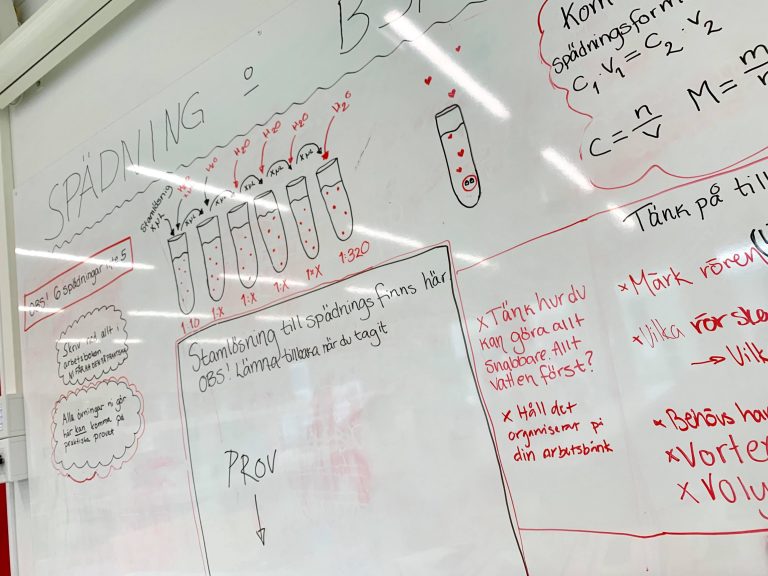 SPÄDNING
Kom
spädningsform
C₁·V₁ = C₂·V₂
C = n/v M = m/
H₂O H₂O H₂O H₂O H₂O H₂O
Stamlösning
XµL XµL XµL XµL XµL XµL
1:10 1:X 1:X 1:X 1:X 1:320
OBS! 6 spädningar, 5
Skriv ned allt i
arbetsboken
Alla övningar ni gör
här kan komma på
praktiska provet
Stamlösning till spädnings finns här
OBS! Lämna tillbaka när du tagit
PROV
x Tänk hur du
kan göra allt
snabbare. Allt
vatten först?
x Håll det
organiserat på
din arbetsbänk
Tänk på till
x Märk rören
x Vilka rör ska
→ Vilk
x Behövs
x Vorte
x Volu